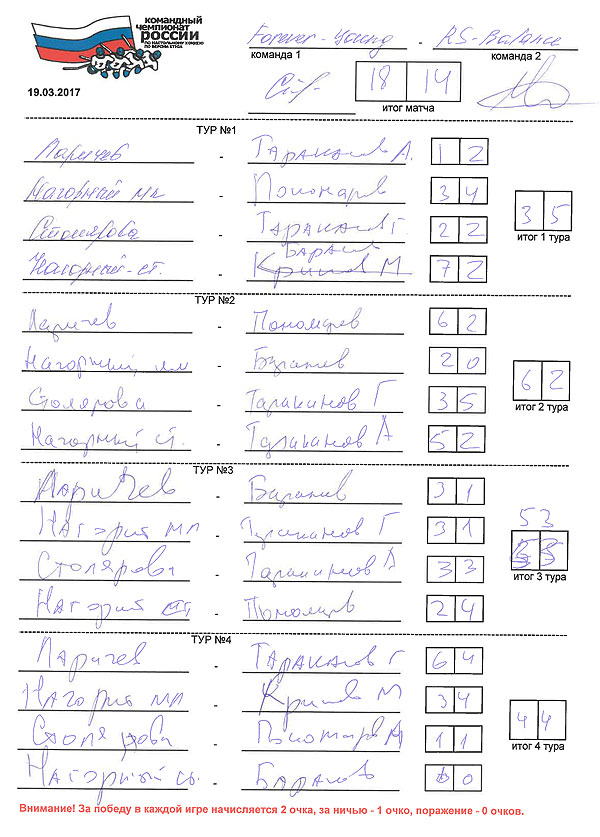 командный
чемпионат
РОССИИ
ПО НАСТОЛЬНОМУ ХОККЕЮ
ПО ВЕРСИИ STIGA
19.03.2017
Forever-Young - RS-Balance
команда 1 команда 2
18 14
итог матча
ТУР №1
Ларичев - Тараканов А. 1 2
Нагорный мл - Пономарёв 3 4
Столярова - Тараканов Г. 2 2
3 5
итог 1 тура
Баранов
Нагорный-ст. - Крылов М 7 2
ТУР №2
Ларичев - Пономарев 6 2
Нагорный мл - Баранов 2 0
6 2
Столярова - Тараканов Г 3 5
итог 2 тура
Нагорный ст. - Тараканов А 5 2
ТУР №3
Ларичев - Баранов 3 1
53
Нагорный мл - Тараканов Г 3 1
Столярова - Тараканов А 3 3
итог 3 тура
Нагорный ст - Пономарёв 2 4
ТУР №4
Ларичев - Тараканов Г 6 4
Нагорный мл - М 3 4
4 4
Столярова - Пономарёв 1 1
итог 4 тура
Нагорный ст. - Баранов 0
Внимание! За победу в каждой игре начисляется 2 очка, за ничью - 1 очко, поражение - 0 очков.